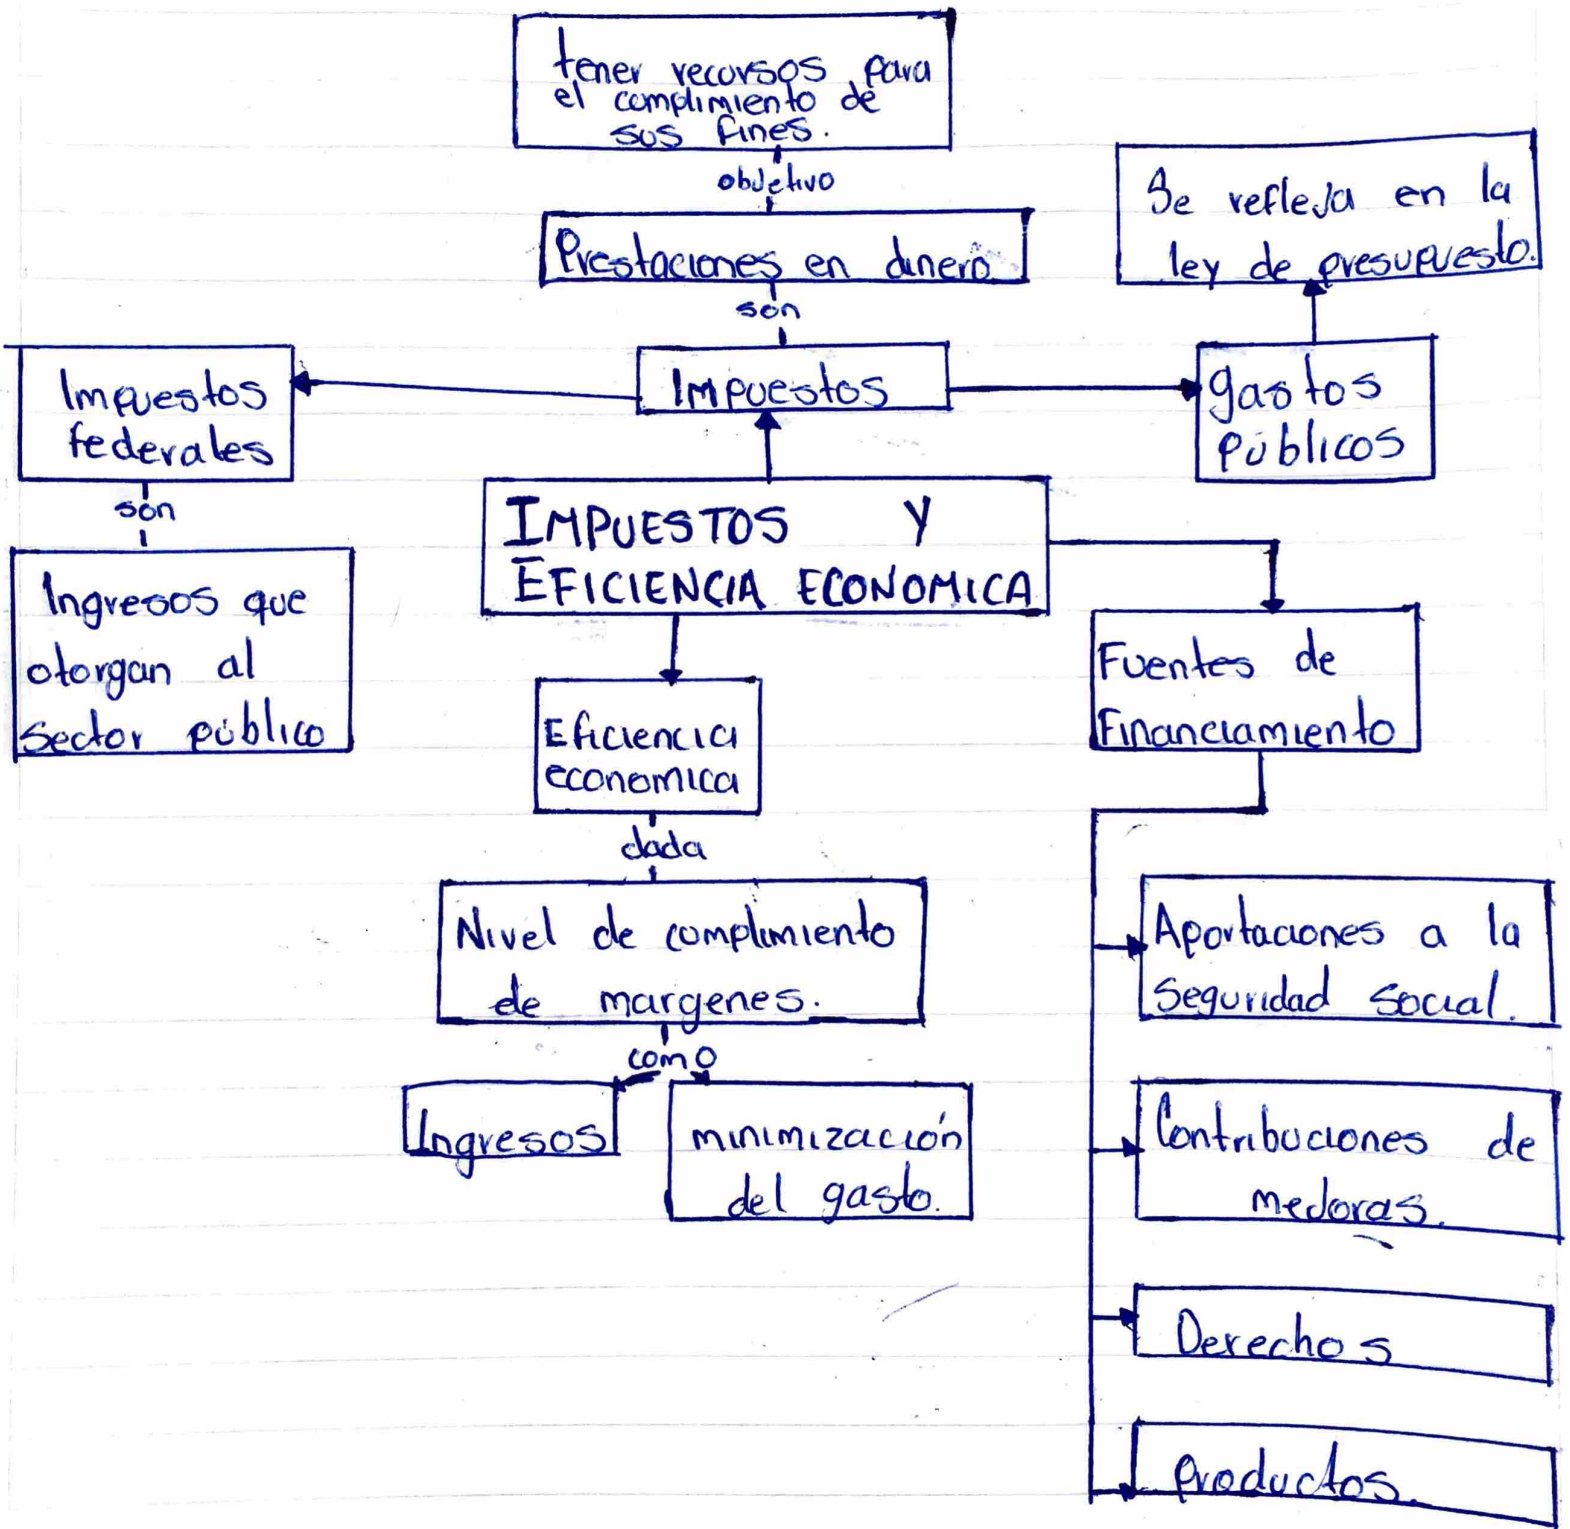 tener recursos para
el cumplimiento de
sus fines.
objetivo
Prestaciones en dinero
son
Se refleja en la
ley de presupuesto.
Impuestos
federales
Impuestos
gastos
públicos
son
Ingresos que
otorgan al
sector público
IMPUESTOS Y
EFICIENCIA ECONOMICA
Eficiencia
economica
Fuentes de
Financiamiento
dada
Nivel de complimiento
de margenes.
como
Ingresos
minimización
del gasto.
Aportaciones a la
Seguridad Social.
Contribuciones de
mejoras.
Derechos
Productos.